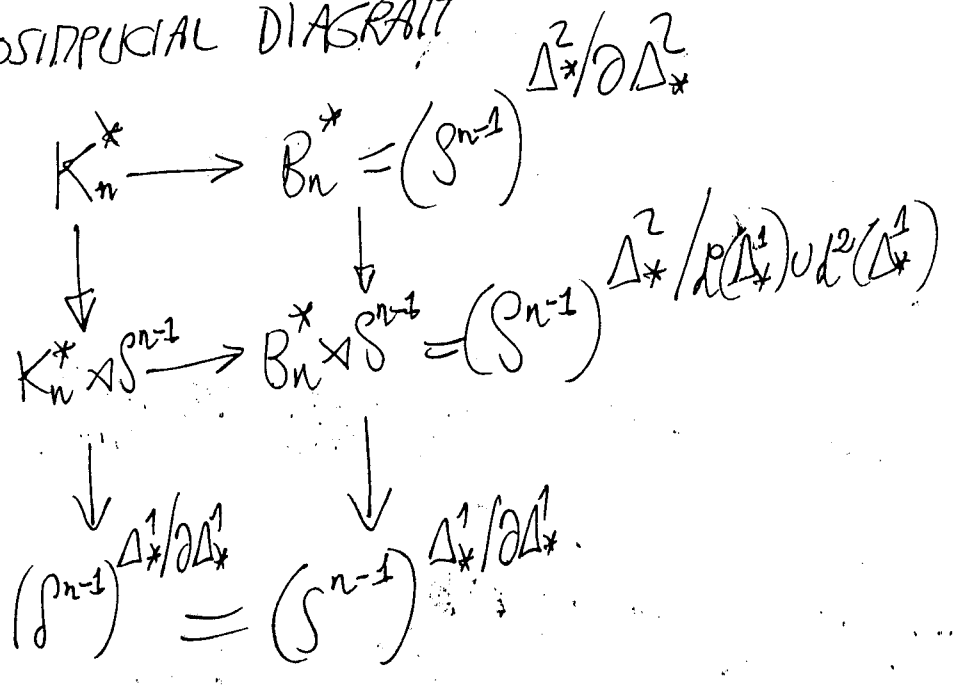 OSIMPLICIAL DIAGRAM
K_n^* → B_n^* = (S^{n-1})^{Δ^2_*/∂Δ^2_*}
↓ ↓
K_n^* ⋊ S^{n-1} → B_n^* ⋊ S^{n-1} = (S^{n-1})^{Δ^2_*/d^0(Δ^1_*)∪d^2(Δ^1_*)}
↓ ↓
(S^{n-1})^{Δ^1_*/∂Δ^1_*} = (S^{n-1})^{Δ^1_*/∂Δ^1_*}.